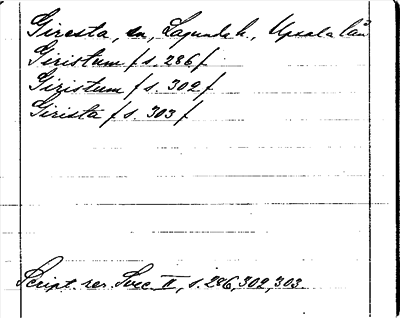 Giresta, sn, Lagunda h., Upsala län
Giristum / s. 286 /
Giristum / s. 302 /
Girista / s. 303 /
Script. rer. Svec. II, s. 286, 302, 303.